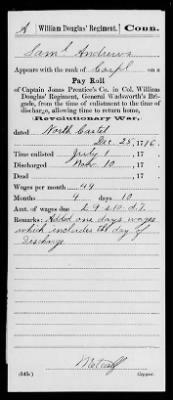 A | William Douglas' Regiment. | Conn.
Sam'l Andrews
Appears with the rank of Corp'l on a
Pay Roll
of Captain Jonas Prentice's Co. in Col. William
Douglas' Regiment, General Wadsworth's Bri-
gade, from the time of enlistment to the time of
discharge, allowing time to return home,
Revolutionary War,
dated North Castel
Dec 25, 1776.
Time enlisted July 1, 17 .
Discharged Nov. 10, 17 .
Dead , 17 .
Wages per month 44
Months 4 days 10
Amt. of wages due £ 9 s 10 d.
Remarks: Added one days wages
which includes the day of
Discharge
Metcalf
Copyist.